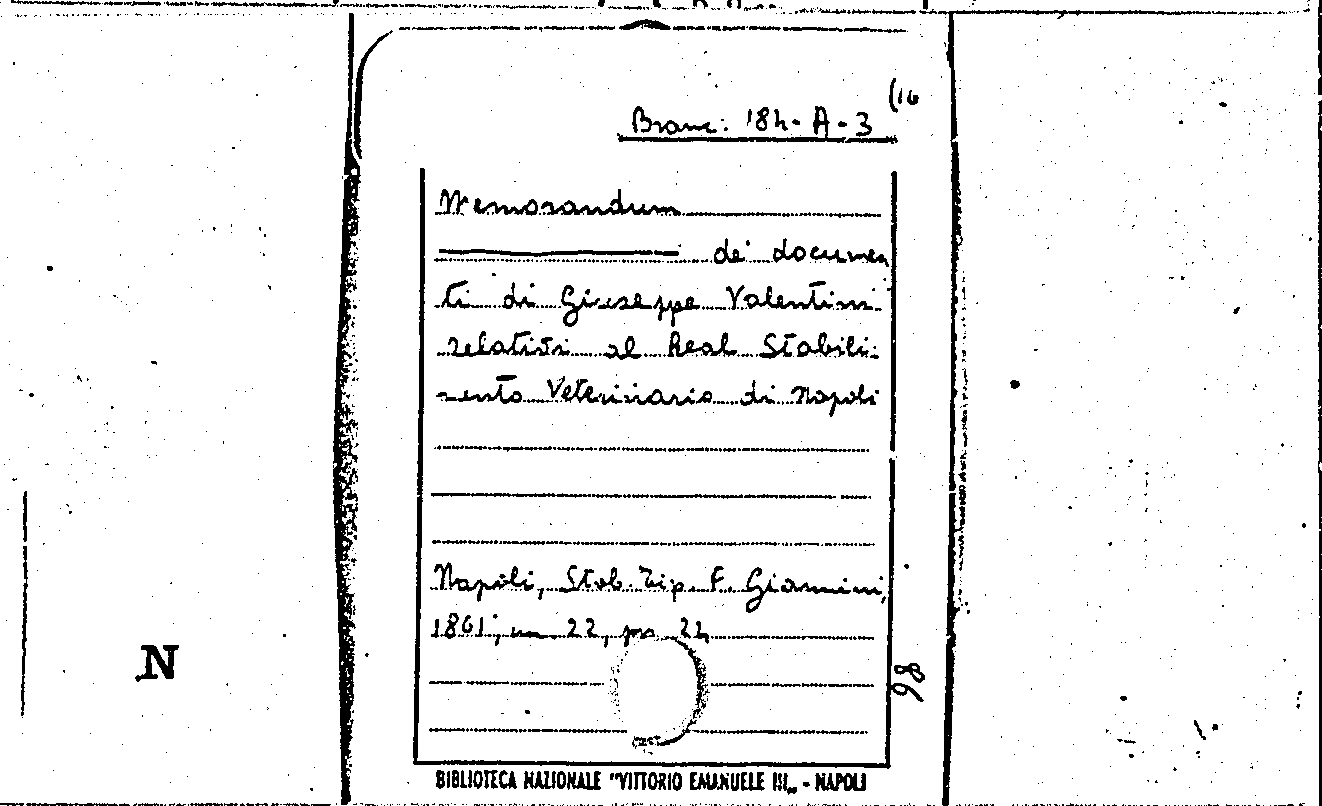 (16
Branc: 184-A-3
Memorandum
de' documen
ti di Giuseppe Valentini
relativi al Real Stabili-
mento Veterinario di Napoli
Napoli, Stab. Tip. F. Giannini,
1861; in 22, pp. 24
98
N
BIBLIOTECA NAZIONALE "VITTORIO EMANUELE III„ - NAPOLI